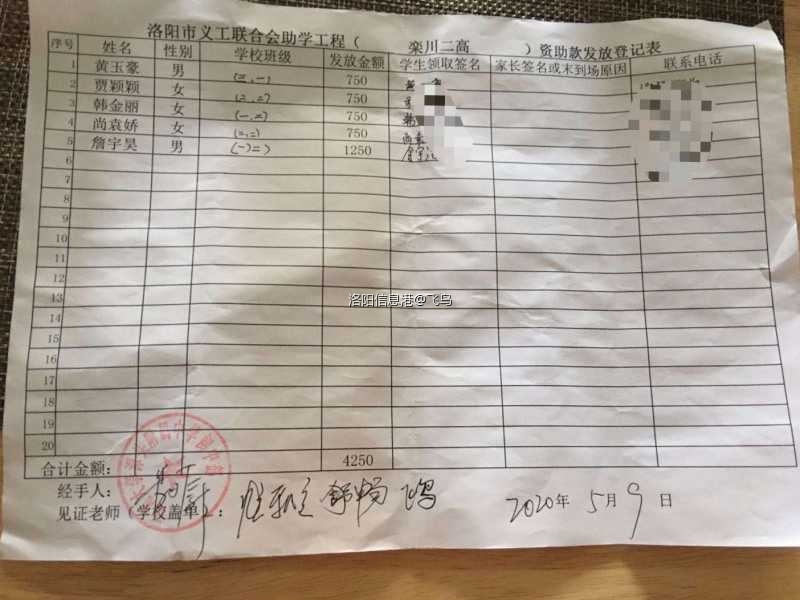 洛阳市义工联合会助学工程（ 栾川二高 ）资助款发放登记表
序号 姓名 性别 学校班级 发放金额 学生领取签名 家长签名或未到场原因 联系电话
1 黄玉豪 男 (二.一) 750
2 贾颖颖 女 (二.二) 750
3 韩金丽 女 (一.二) 750
4 尚袁娇 女 (二.二) 750
5 詹宇昊 男 (一)二) 1250
6
7
8
9
10
11
12
13
14
15
16
17
18
19
20
合计金额： 4250
经手人：
见证老师（学校盖章）： 舒畅 飞鸟 2020年 5月 9日
洛阳信息港@飞鸟